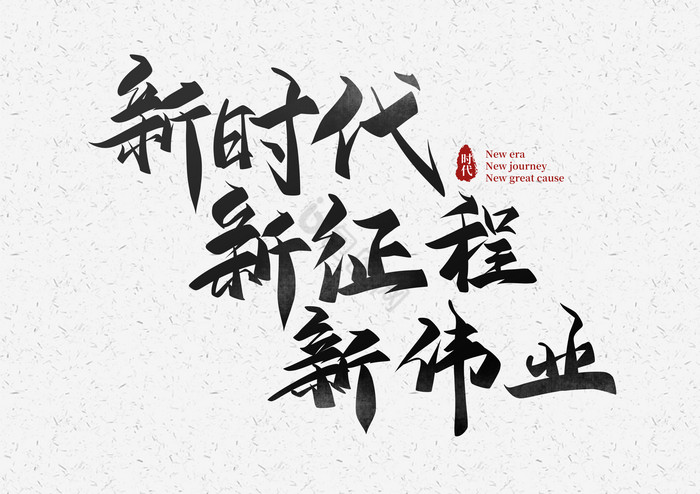 新时代
时代
New era
New journey
New great cause
新征程
新伟业